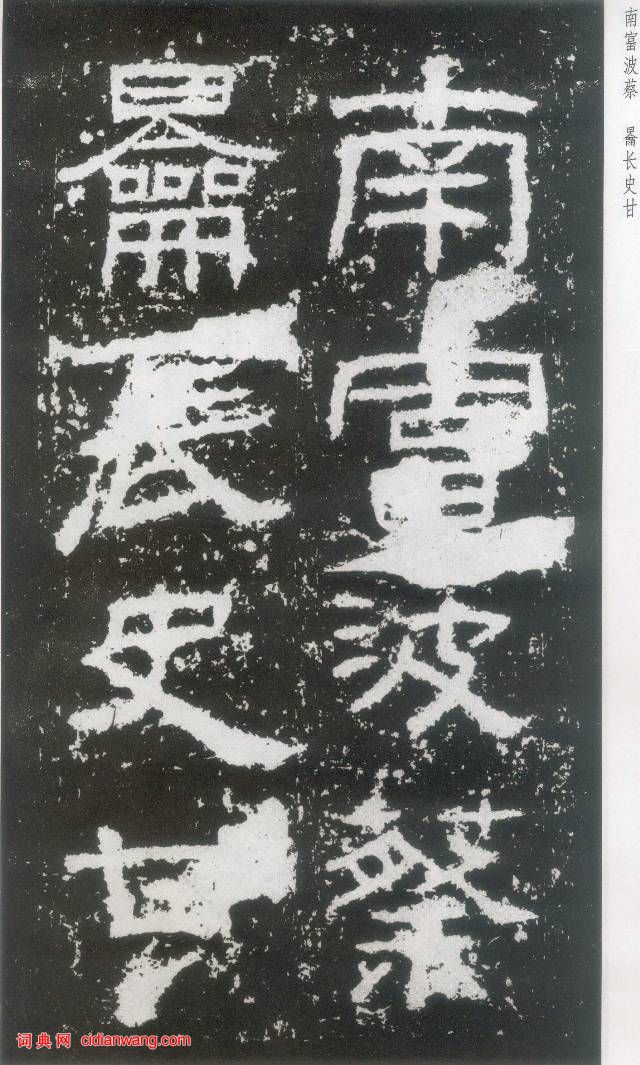 南富波蔡 长史甘
南富波蔡
長史甘
词典网 cidianwang.com